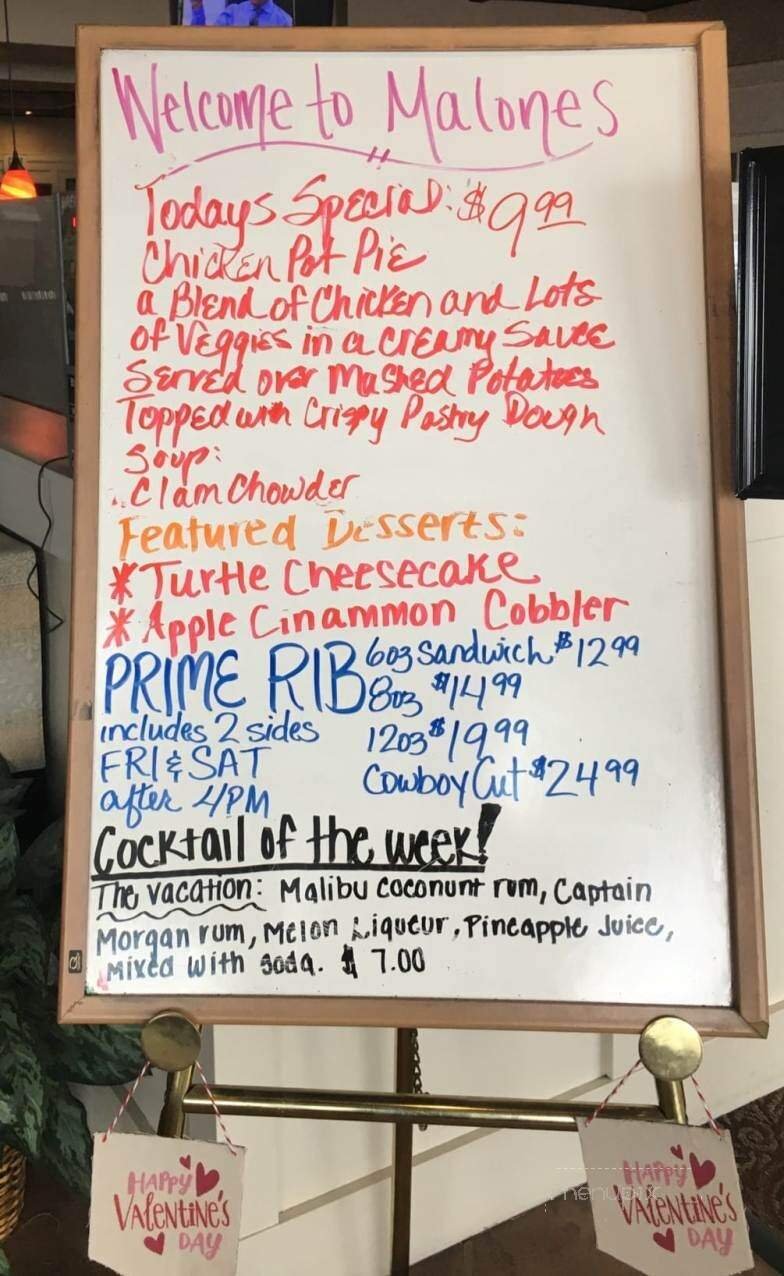 Welcome to Malones
Todays Special: $9.99
Chicken Pot Pie
a Blend of Chicken and Lots
of Veggies in a creamy Sauce
Served over Mashed Potatoes
Topped with Crispy Pastry Dough
Soup:
Clam Chowder
Featured Desserts:
* Turtle Cheesecake
* Apple Cinammon Cobbler
PRIME RIB
includes 2 sides
FRI & SAT
after 4PM
6oz Sandwich $12.99
8oz $14.99
12oz $19.99
Cowboy Cut $24.99
Cocktail of the week!
The vacation: Malibu Coconunt rum, Captain
Morgan rum, Melon Liqueur, Pineapple Juice,
Mixed with soda. $7.00
HAPPY
VALENTINE'S
DAY
HAPPY
VALENTINE'S
DAY
menupix